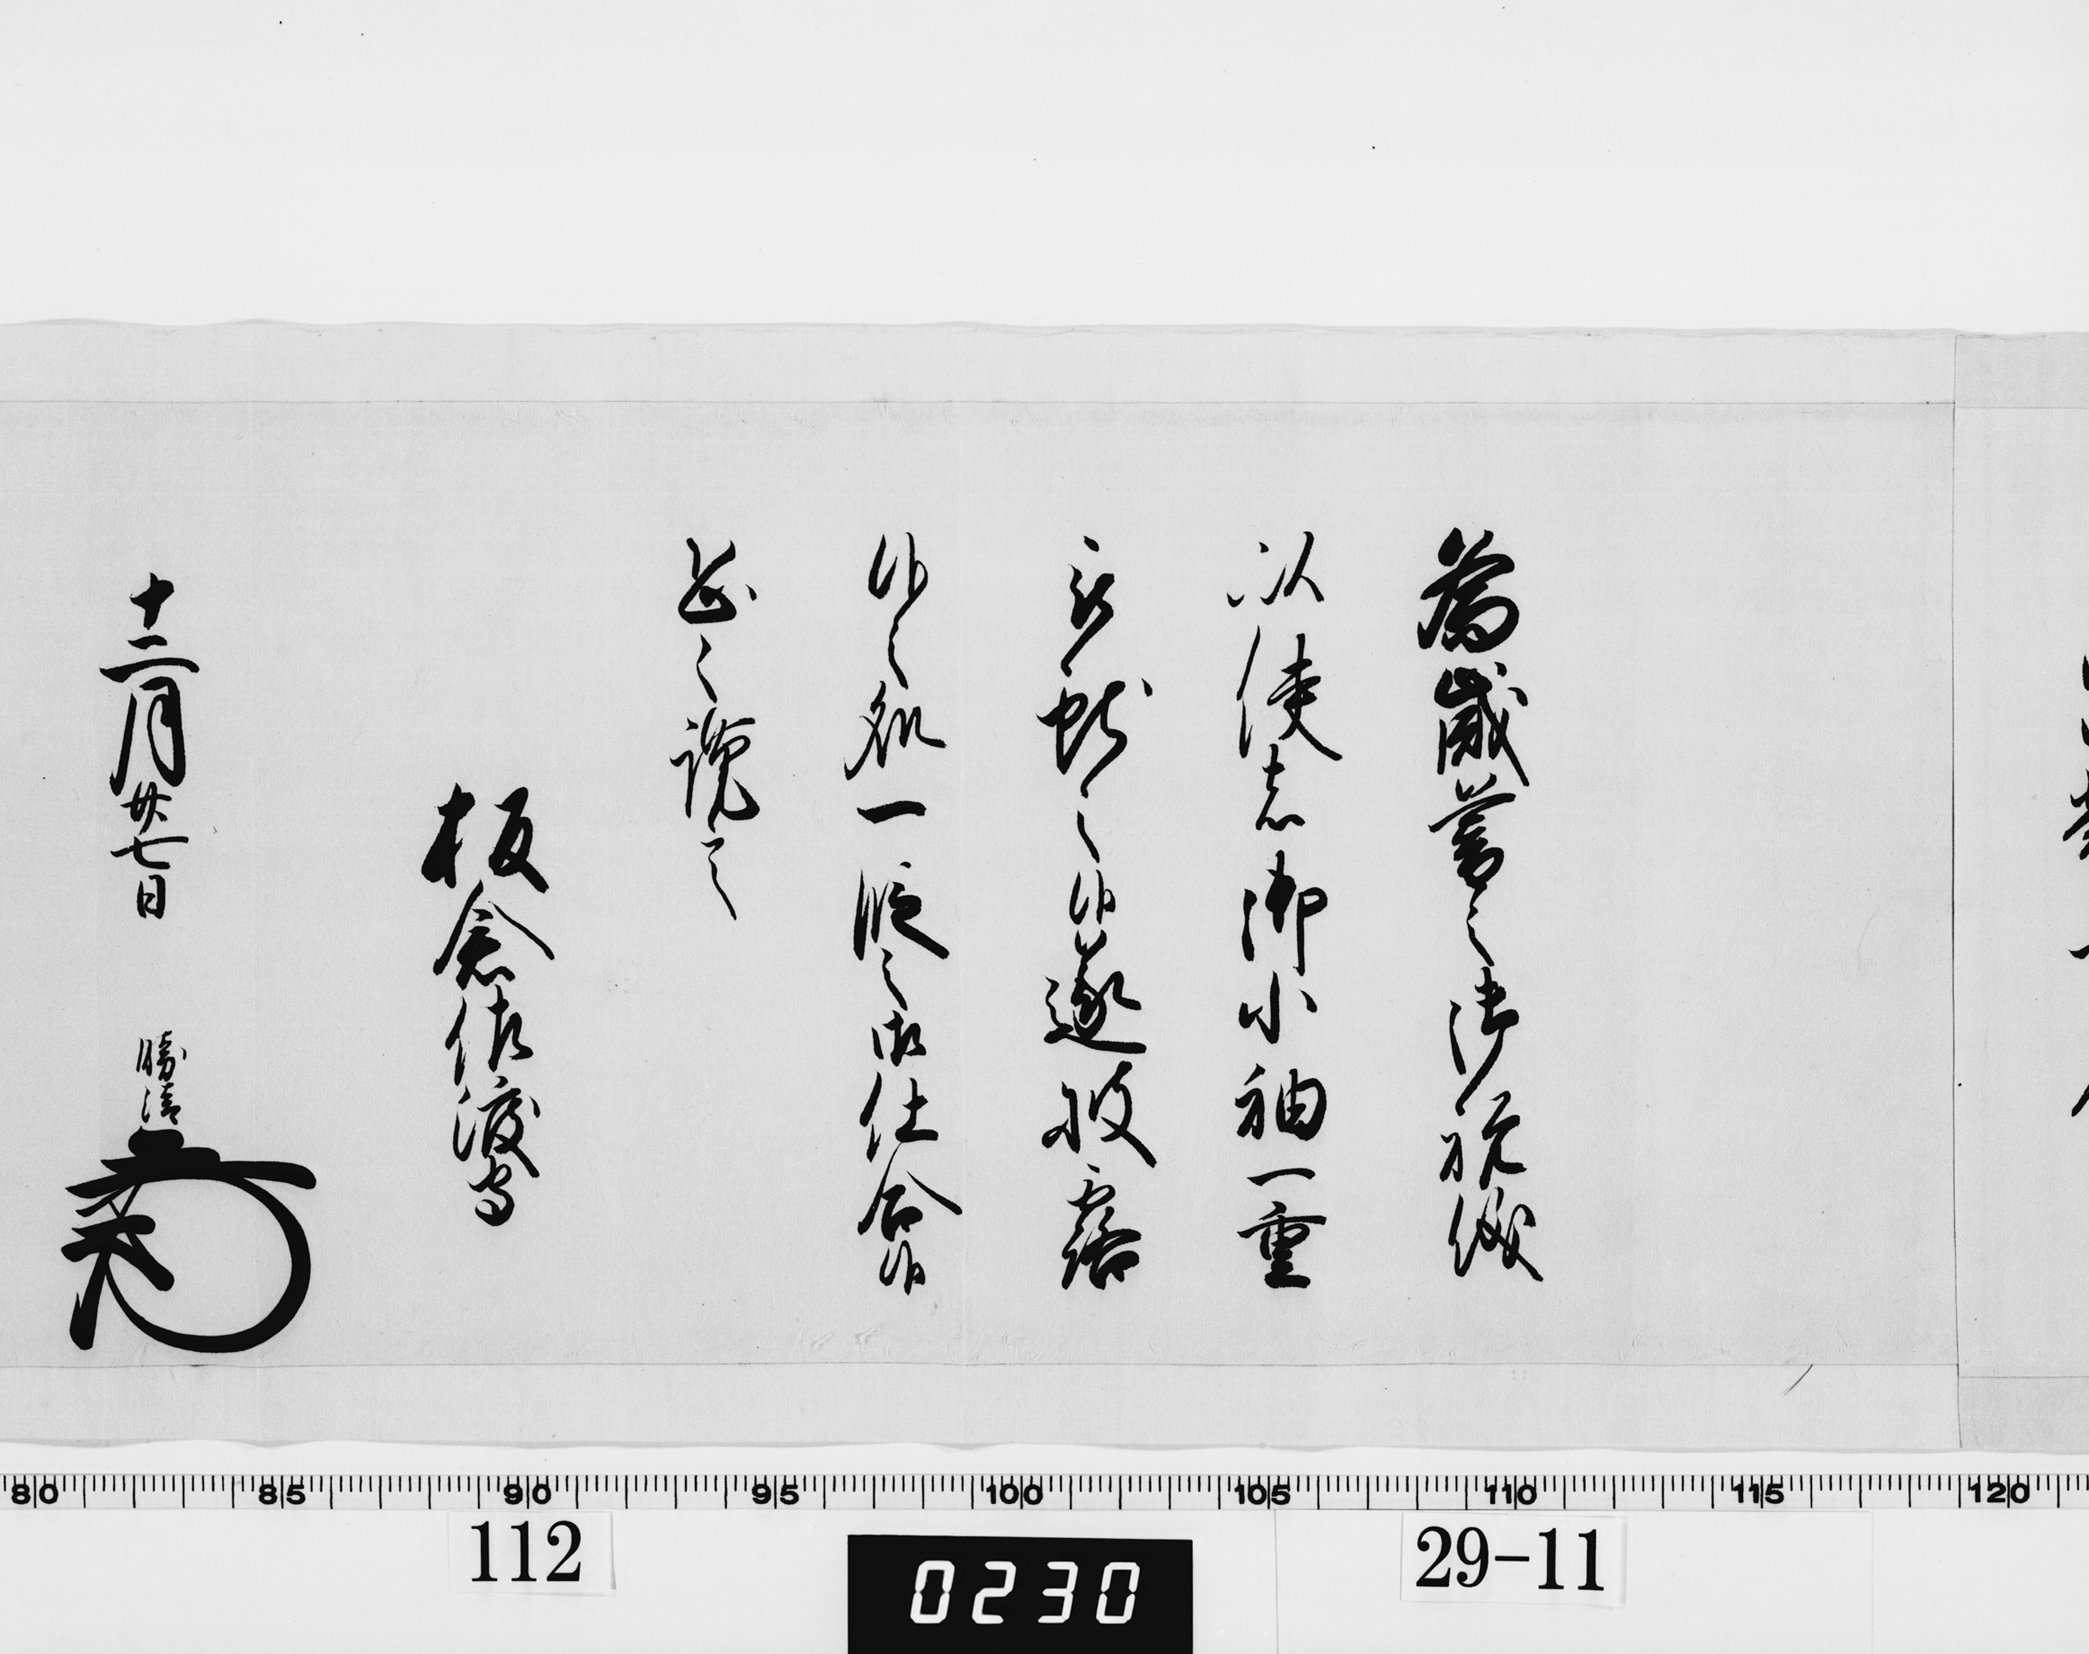 為歳暮之御祝儀
以使者御小袖一重
被献之候遂披露
候之処一段之御仕合候
恐々謹言
板倉佐渡守
十二月廿七日 勝清
80 85 90 95 100 105 110 115 120
112
0230
29-11